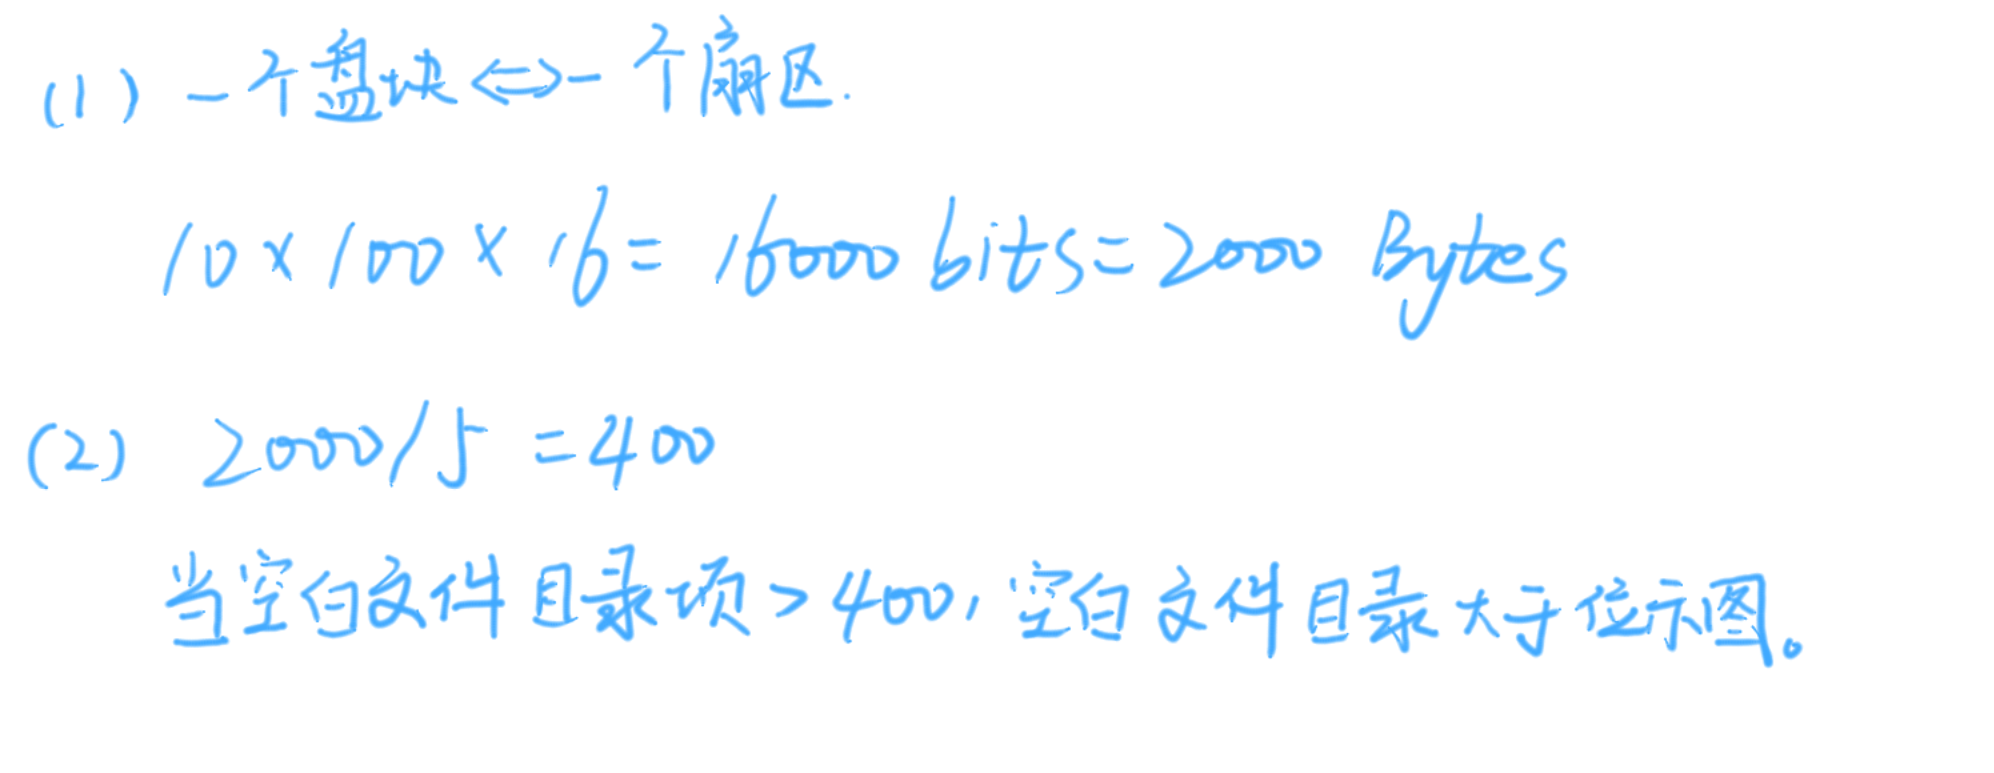 (1) 一个盘块⇔一个扇区.
10×100×16=16000 bits=2000 Bytes
(2) 2000/5=400
当空白文件目录项>400,空白文件目录大于位示图。